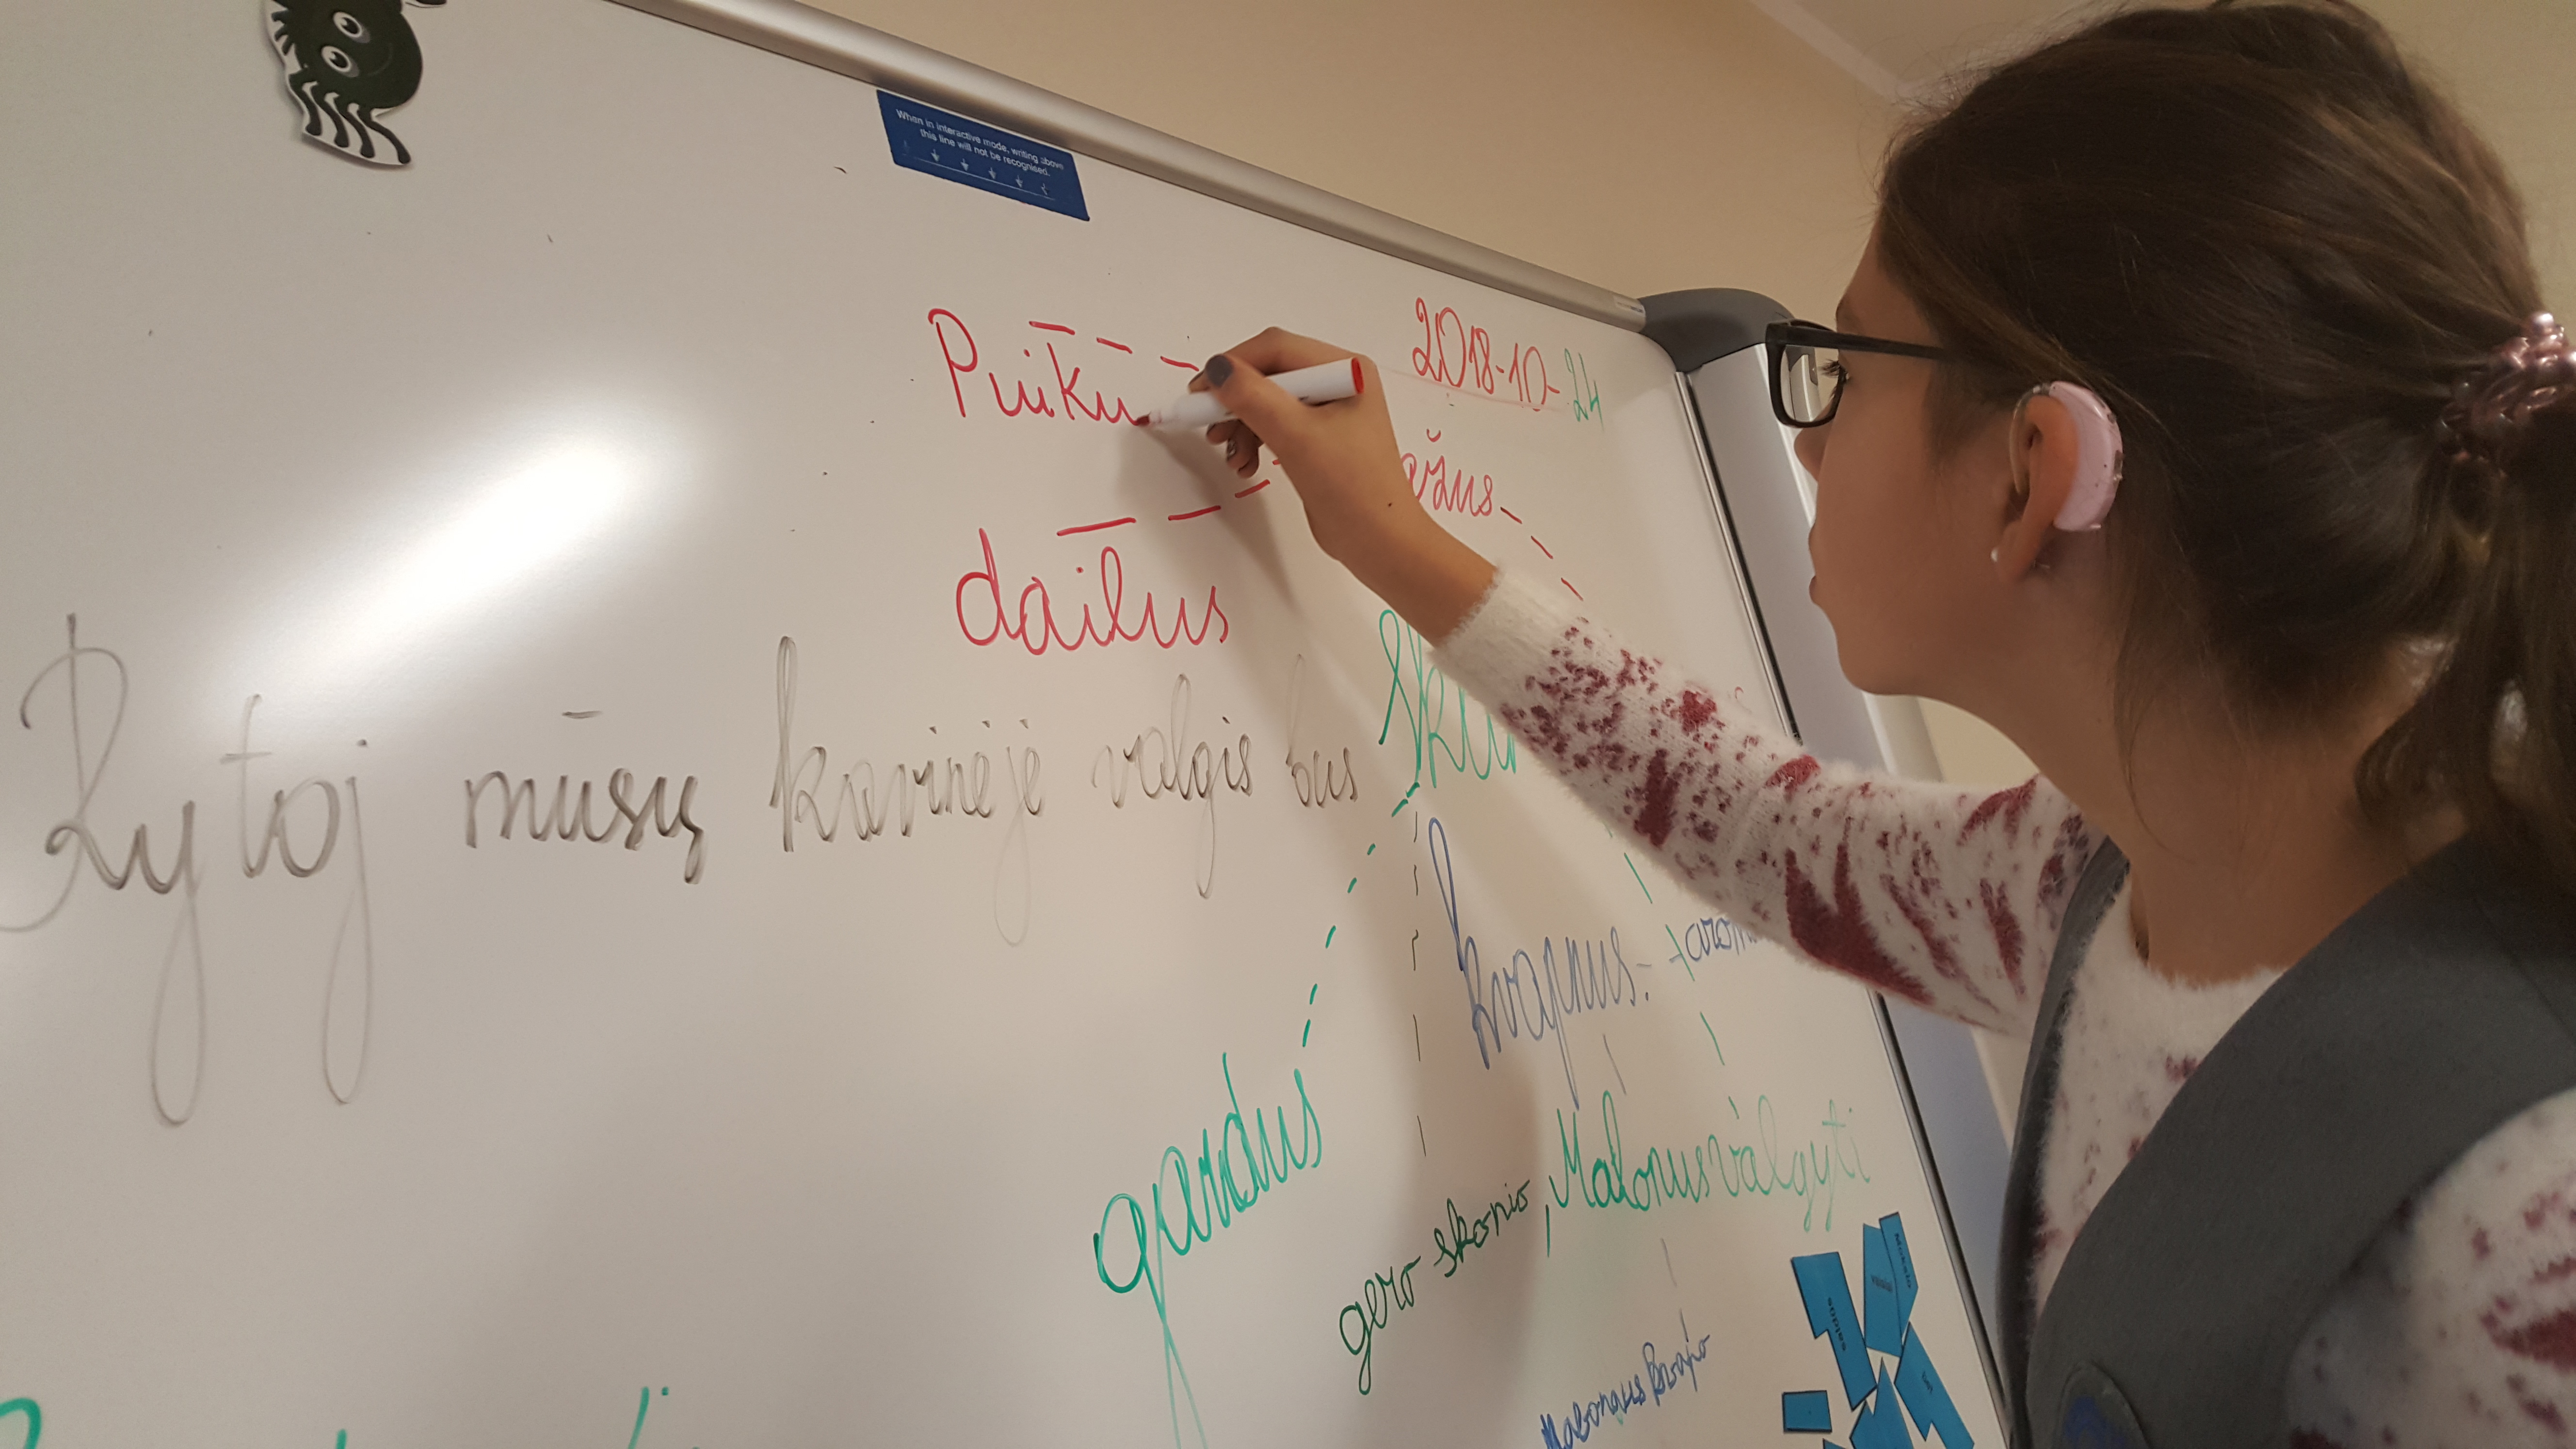 When in interactive mode, writing above
this line will not be recognised.
2018-10-24
Puiku
ažus
dailus
Rytoj mūsų kavinėje valgis bus
kvapnus
gardus
gero skonio, Malonus valgyti
Malonaus kvapo
saldūs